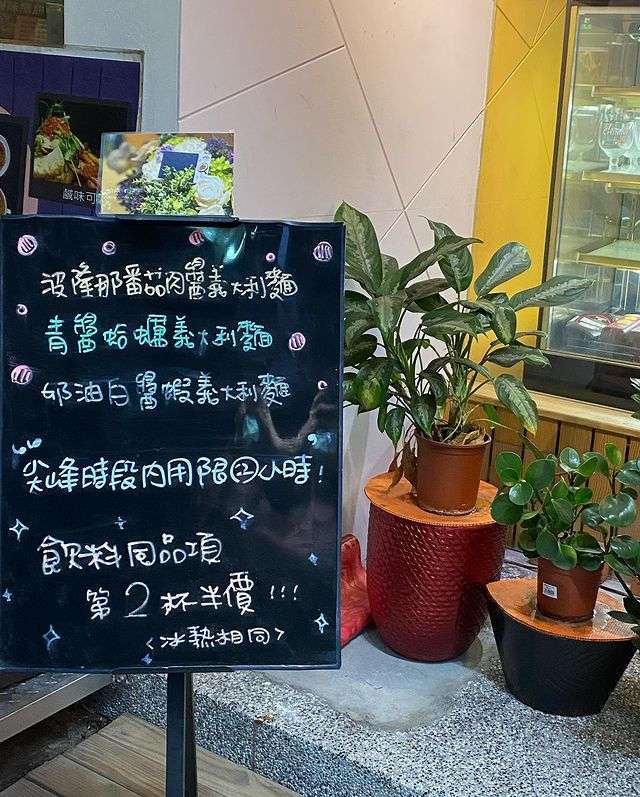 鹹味可
波隆那番茄肉醬義大利麵
青醬蛤蠣義大利麵
奶油白醬蝦義大利麵
尖峰時段內用限②小時!
飲料同品項
第2杯半價!!!
<冰熱相同>